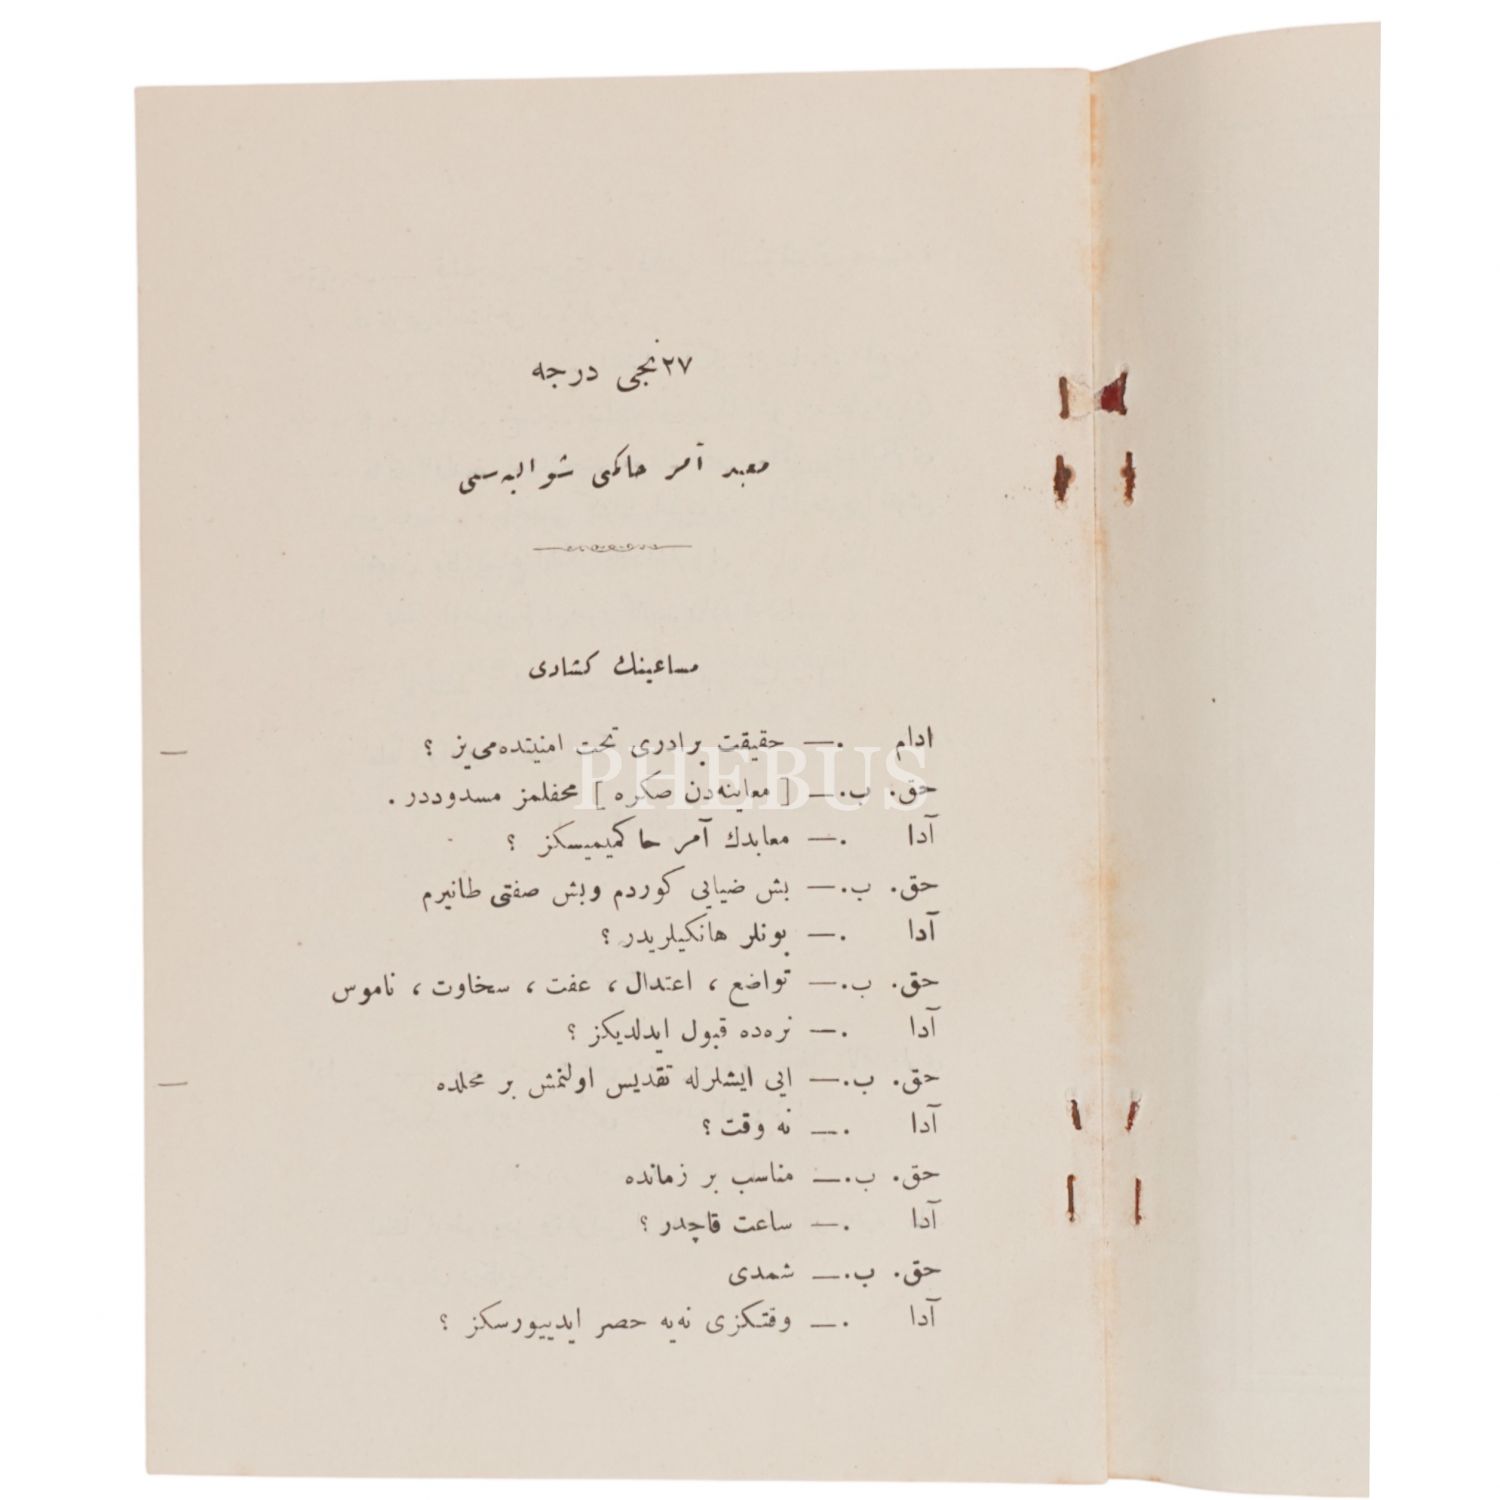 ٢٧نجی درجه
معبد آمر حاکمی شوالیه‌سی
مساعینك كشادی
ادام .— حقیقت برادری تحت امنیتده‌می‌یز ؟
حق. ب.— [ معاینه‌دن صكره ] محفلمز مسدوددر .
آدا .— معابدك آمر حاكمیمیسكز ؟
حق. ب.— بش ضیایی كوردم وبش صفتی طانیرم
آدا .— بونلر هانكیلریدر ؟
حق. ب.— تواضع ، اعتدال ، عفت ، سخاوت ، ناموس
آدا .— نره‌ده قبول ایدلدیكز ؟
حق. ب.— ایی ایشلرله تقدیس اولنمش بر محلده
آدا .— نه وقت ؟
حق. ب.— مناسب بر زمانده
آدا .— ساعت قاچدر ؟
حق. ب.— شمدی
آدا .— وقتكزی نه‌یه حصر ایدییورسكز ؟
PHEBUS